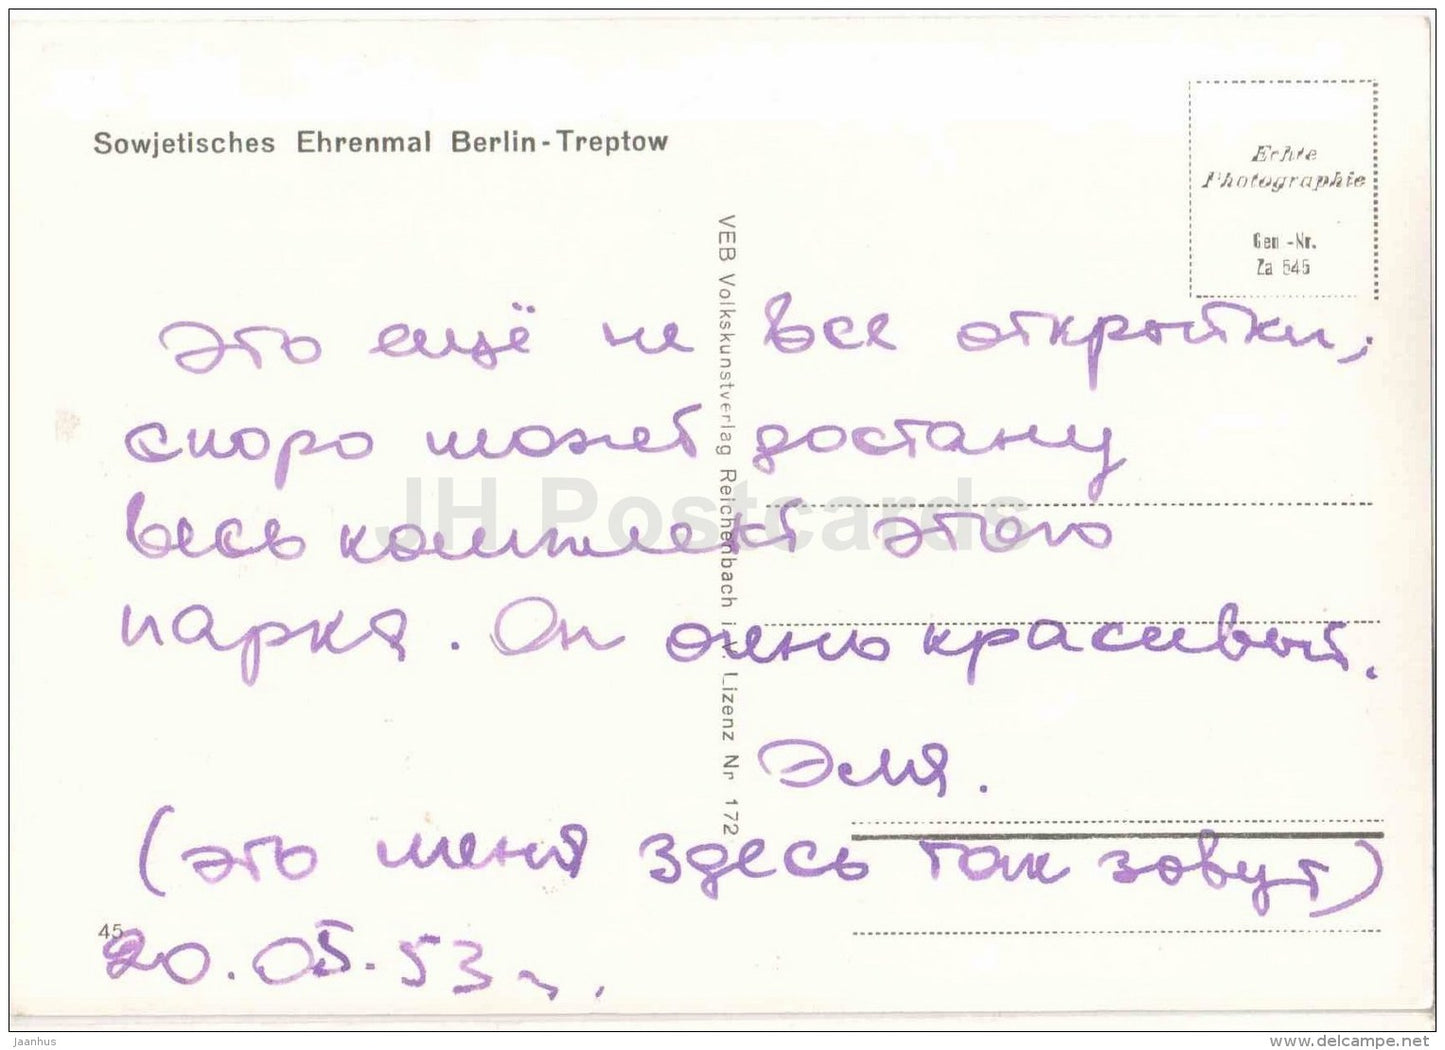 Sowjetisches Ehrenmal Berlin-Treptow
Echte
Photographie
Gen-Nr.
Za 545
VEB Volkskunstverlag Reichenbach i. V. Lizenz Nr 172
это ещё не все открытки,
скоро может достану
весь комплект этого
парка. Он очень красивый.
Эля.
(это меня здесь так зовут)
45
20.05.53 г.
JH Postcards
jaanhus
www.delcampe.net